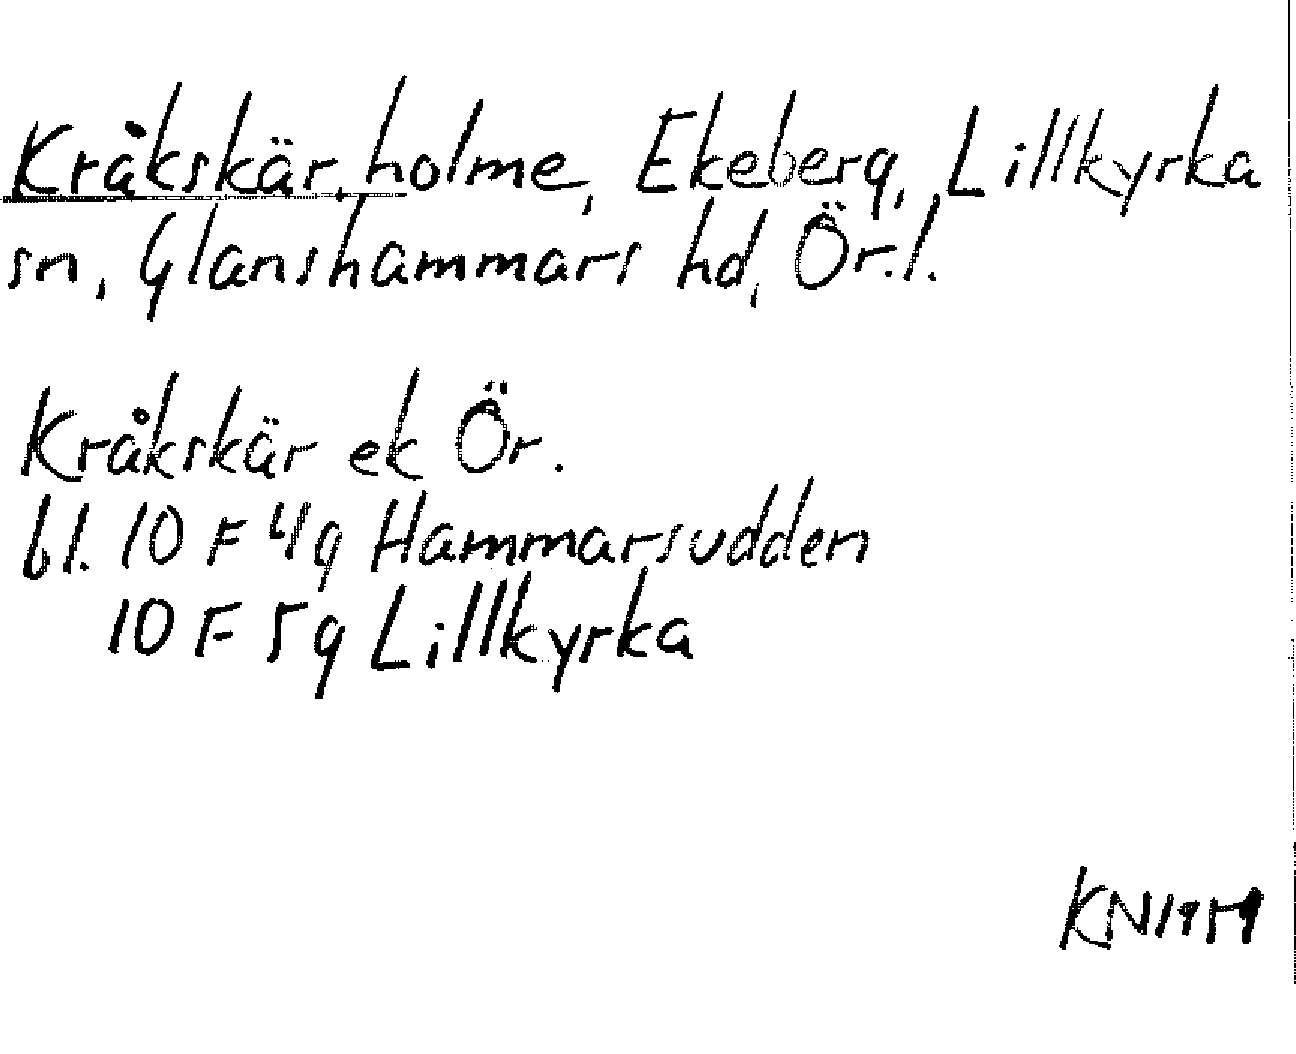 Kråkskär, holme, Ekeberg, Lillkyrka
sn, Glanshammars hd, Ör.l.
Kråkskär ek Ör.
bl. 10 F 4g Hammarsudden
10 F 5g Lillkyrka
KN1959